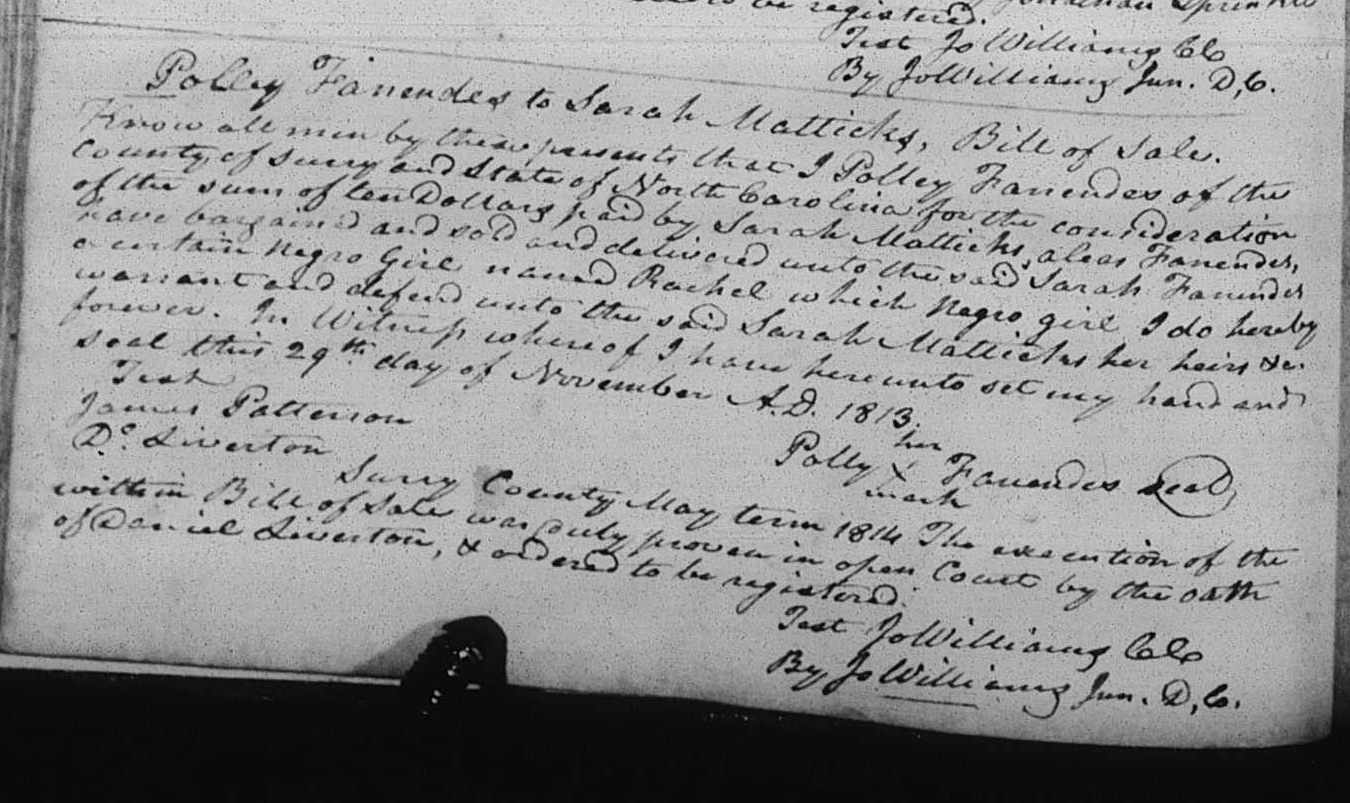 to be registered.
Test Jo Williams Clk
By Jo Williams Jun. D,C.
Polley Fanendes to Sarah Matticks, Bill of Sale.
Know all men by these presents that I Polley Fanendes of the
County of Surry and State of North Carolina for the consideration
of the sum of ten Dollars paid by Sarah Matticks, aleas Fanendes,
have bargained and sold and delivered unto the said Sarah Fanendes
a certain Negro Girl named Rachel which Negro girl I do hereby
warrant and defend unto the said Sarah Matticks her heirs &c.
forever. In Witness whereof I have hereunto set my hand and
seal this 29th day of November A.D. 1813.
Test
James Patterson
Dl. Liverton
her
Polly X Fanendes Seal
mark
Surry County May term 1814 The execution of the
within Bill of Sale was duly proven in open Court by the oath
of Daniel Liverton, & ordered to be registered.
Test Jo Williams Clk
By Jo Williams Jun. D,C.